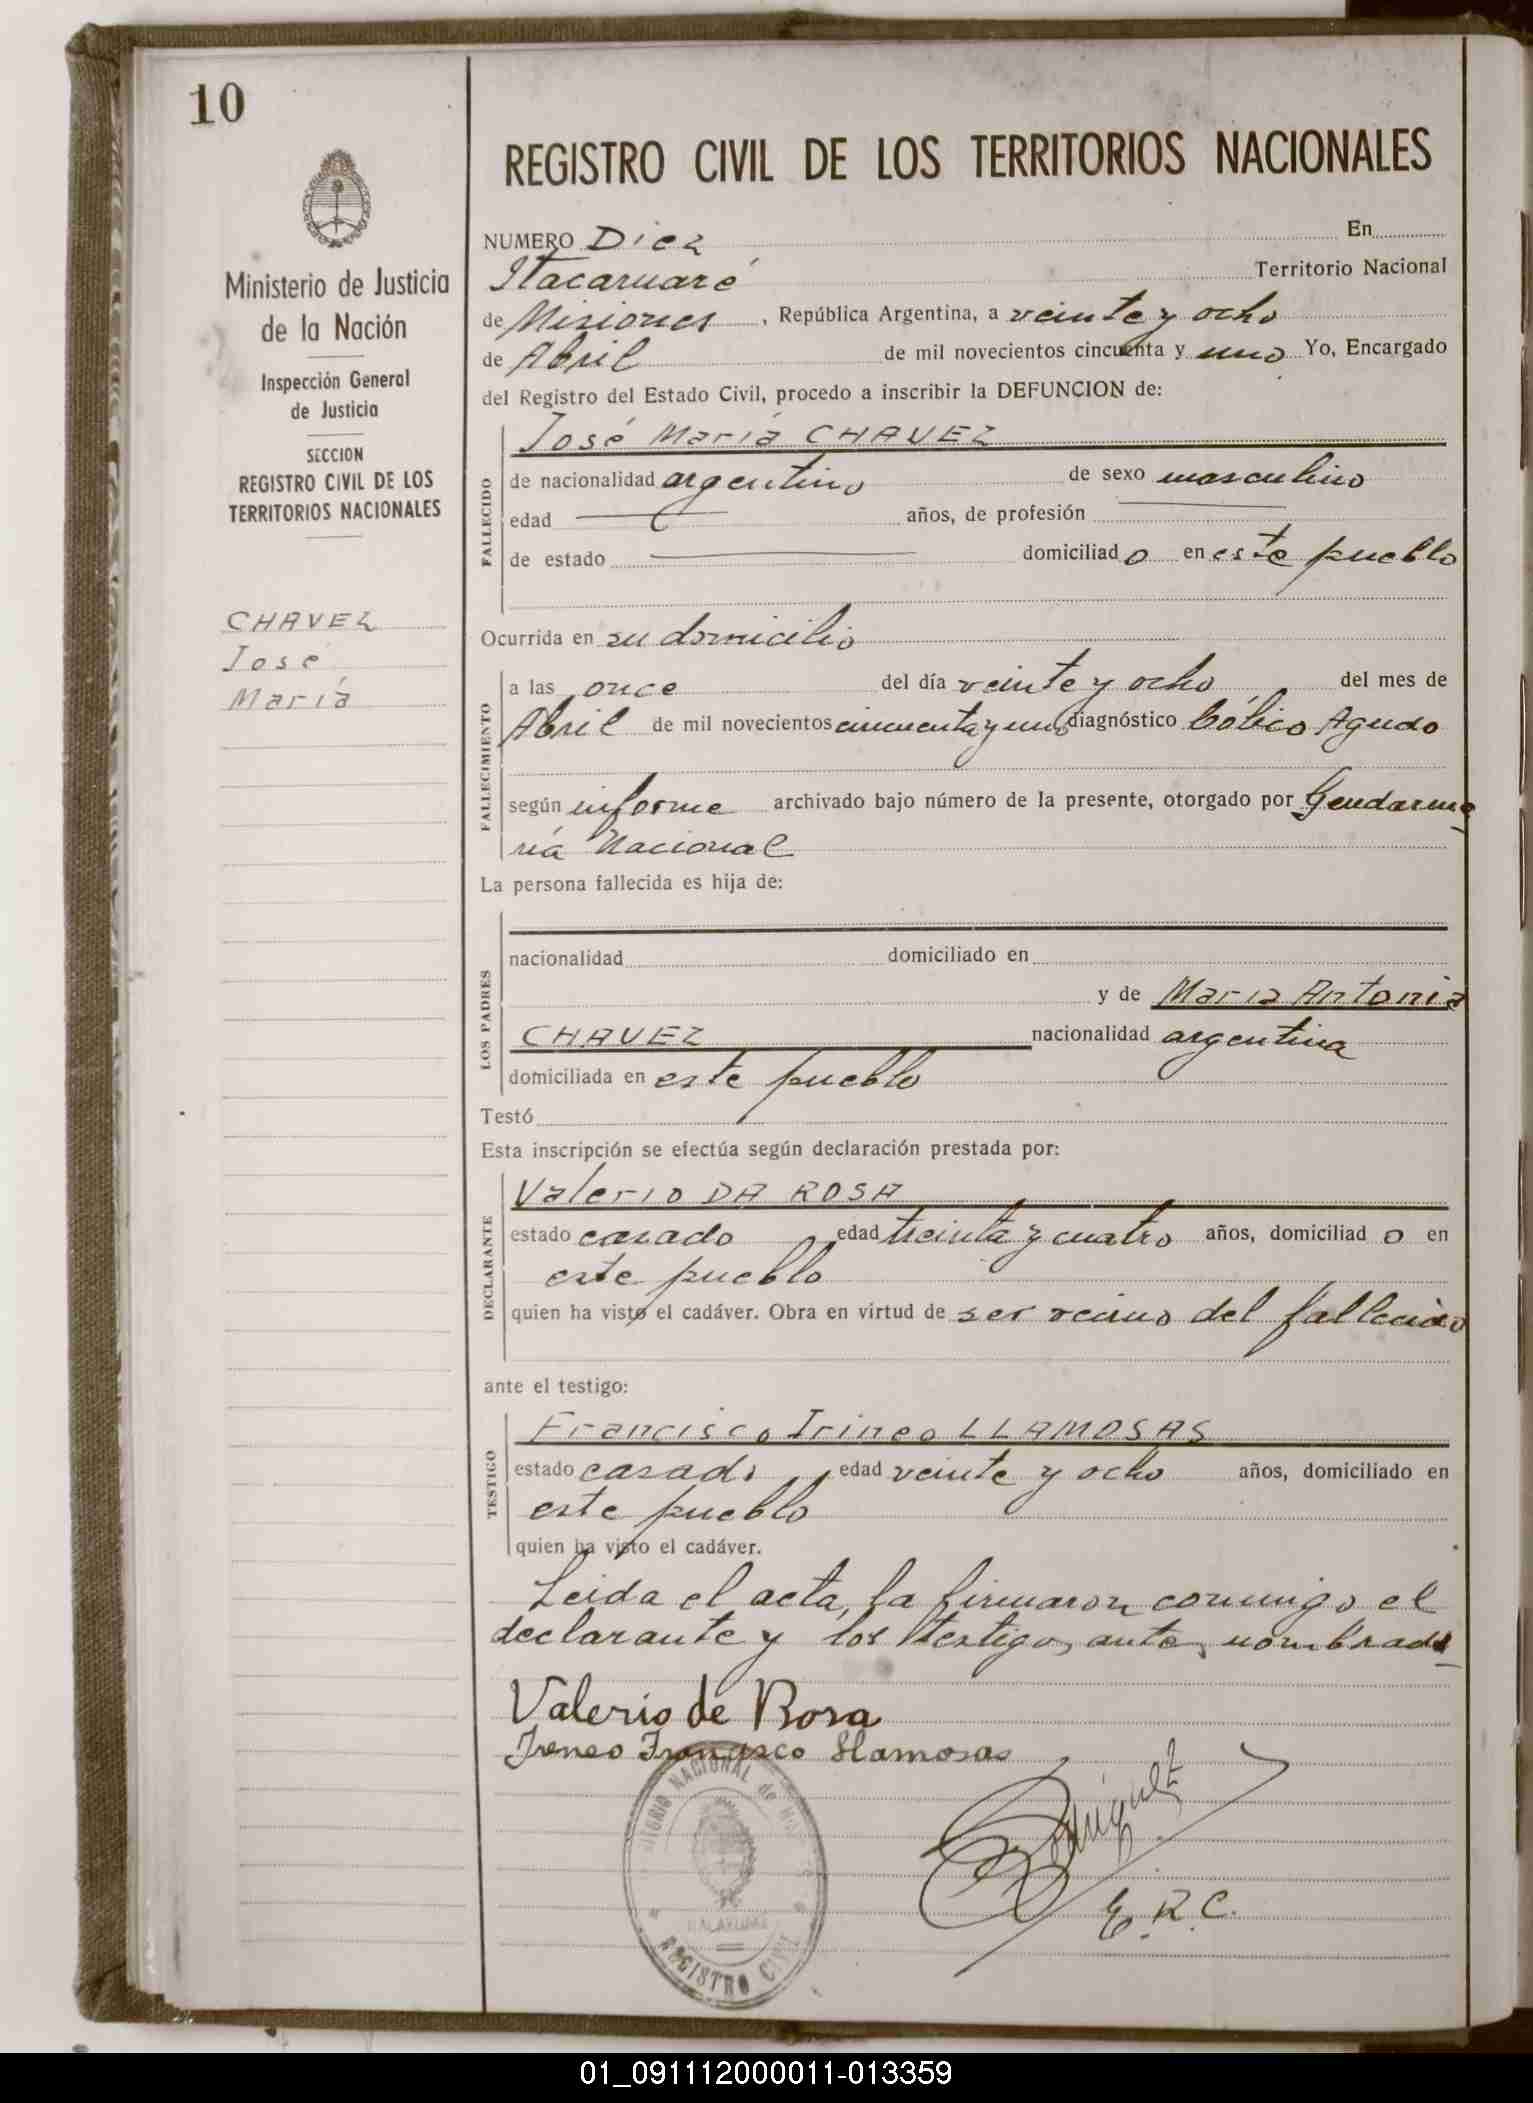 10
REGISTRO CIVIL DE LOS TERRITORIOS NACIONALES
Ministerio de Justicia
de la Nación
Inspección General
de Justicia
SECCION
REGISTRO CIVIL DE LOS
TERRITORIOS NACIONALES
CHAVEZ
José
María
NUMERO Diez En
Itacaruaré Territorio Nacional
de Misiones, República Argentina, a veinte y ocho
de Abril de mil novecientos cincuenta y uno Yo, Encargado
del Registro del Estado Civil, procedo a inscribir la DEFUNCION de:
FALLECIDO
José María CHAVEZ
de nacionalidad argentino de sexo masculino
edad años, de profesión
de estado domiciliad o en este pueblo
Ocurrida en su domicilio
FALLECIMIENTO
a las once del día veinte y ocho del mes de
Abril de mil novecientos cincuenta y uno diagnóstico Cólico Agudo
según informe archivado bajo número de la presente, otorgado por Gendarme
ría Nacional
La persona fallecida es hija de:
LOS PADRES
nacionalidad domiciliado en
y de María Antonia
CHAVEZ nacionalidad argentina
domiciliada en este pueblo
Testó
Esta inscripción se efectúa según declaración prestada por:
DECLARANTE
Valerio DA ROSA
estado casado edad treinta y cuatro años, domiciliad o en
este pueblo
quien ha visto el cadáver. Obra en virtud de ser vecino del fallecido
ante el testigo:
TESTIGO
Francisco Irineo LLAMOSAS
estado casado, edad veinte y ocho años, domiciliado en
este pueblo
quien ha visto el cadáver.
Leida el acta, la firmaron conmigo el
declarante y los testigos antes nombrados
Valerio de Rosa
Ireneo Francisco Llamosas
NACIONAL de
REGISTRO CIVIL
E.R.C.
01_091112000011-013359